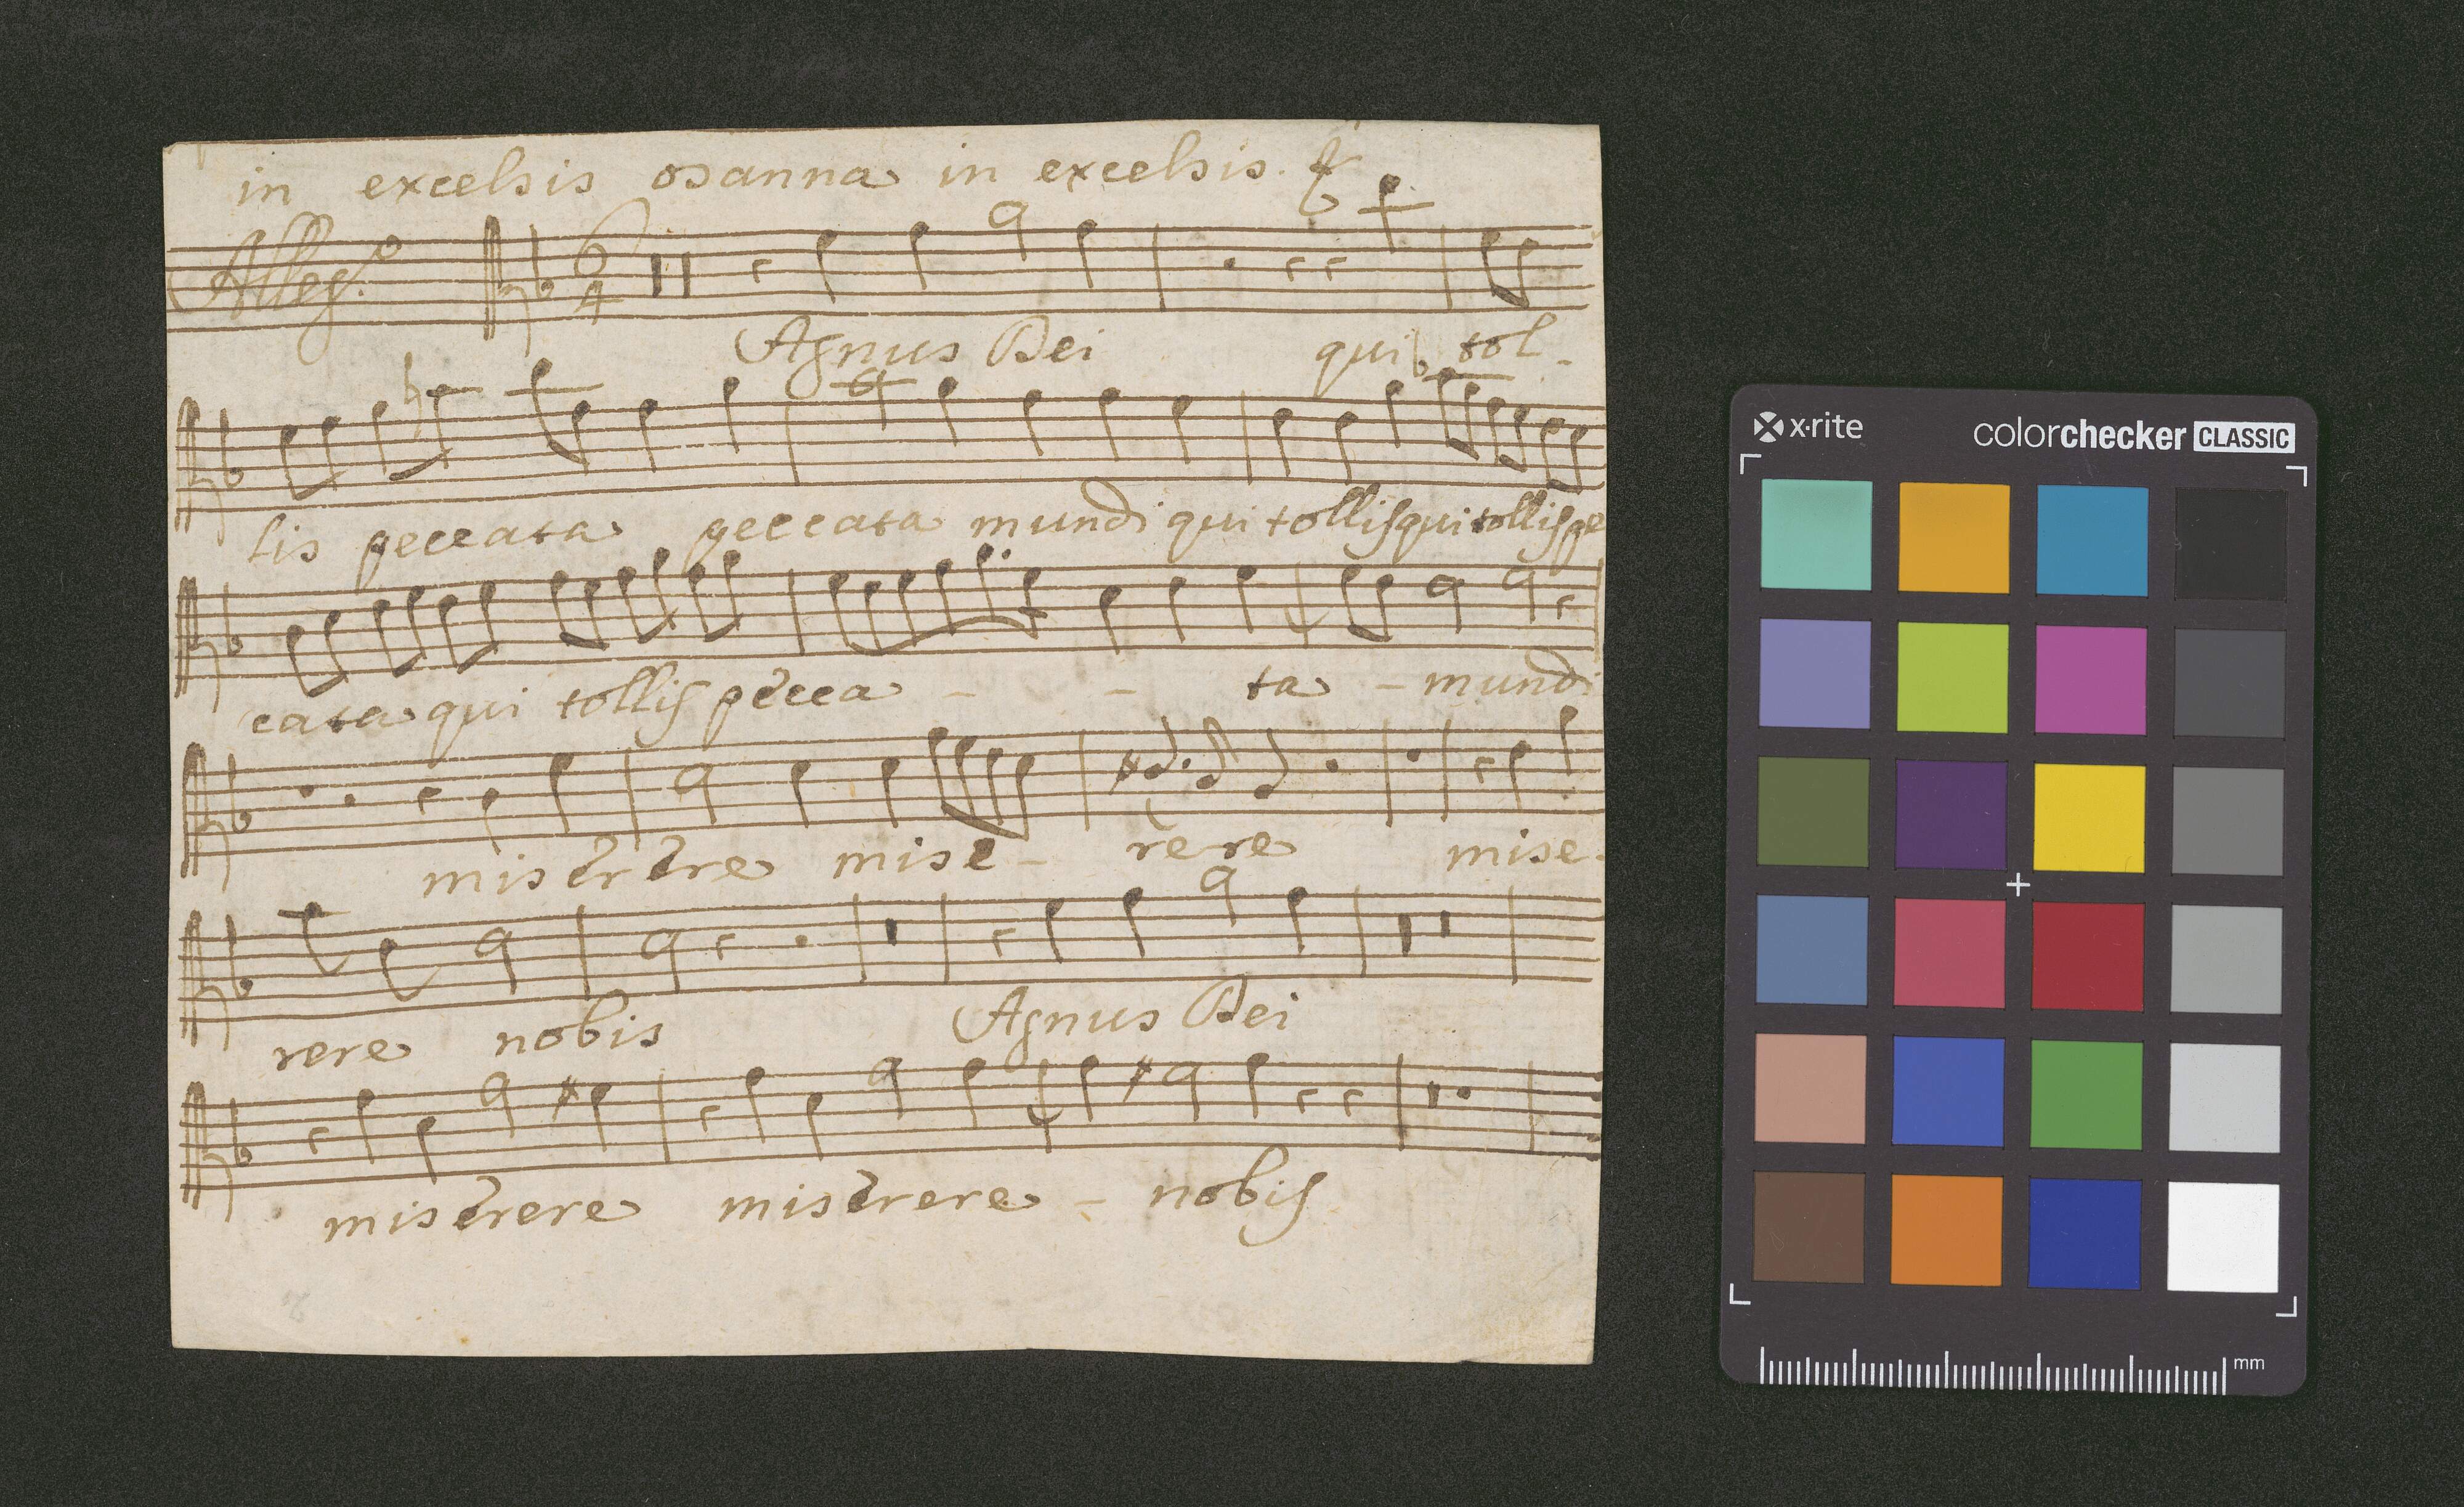 in excelsis osanna in excelsis.
Alleg.o
6
4
Agnus Dei qui tol-
lis peccata peccata mundi qui tollis qui tollis pe
cata qui tollis pecca - - ta - mundi
miserere mise - rere mise-
rere nobis Agnus Dei
miserere miserere - nobis
x-rite
colorchecker CLASSIC
mm